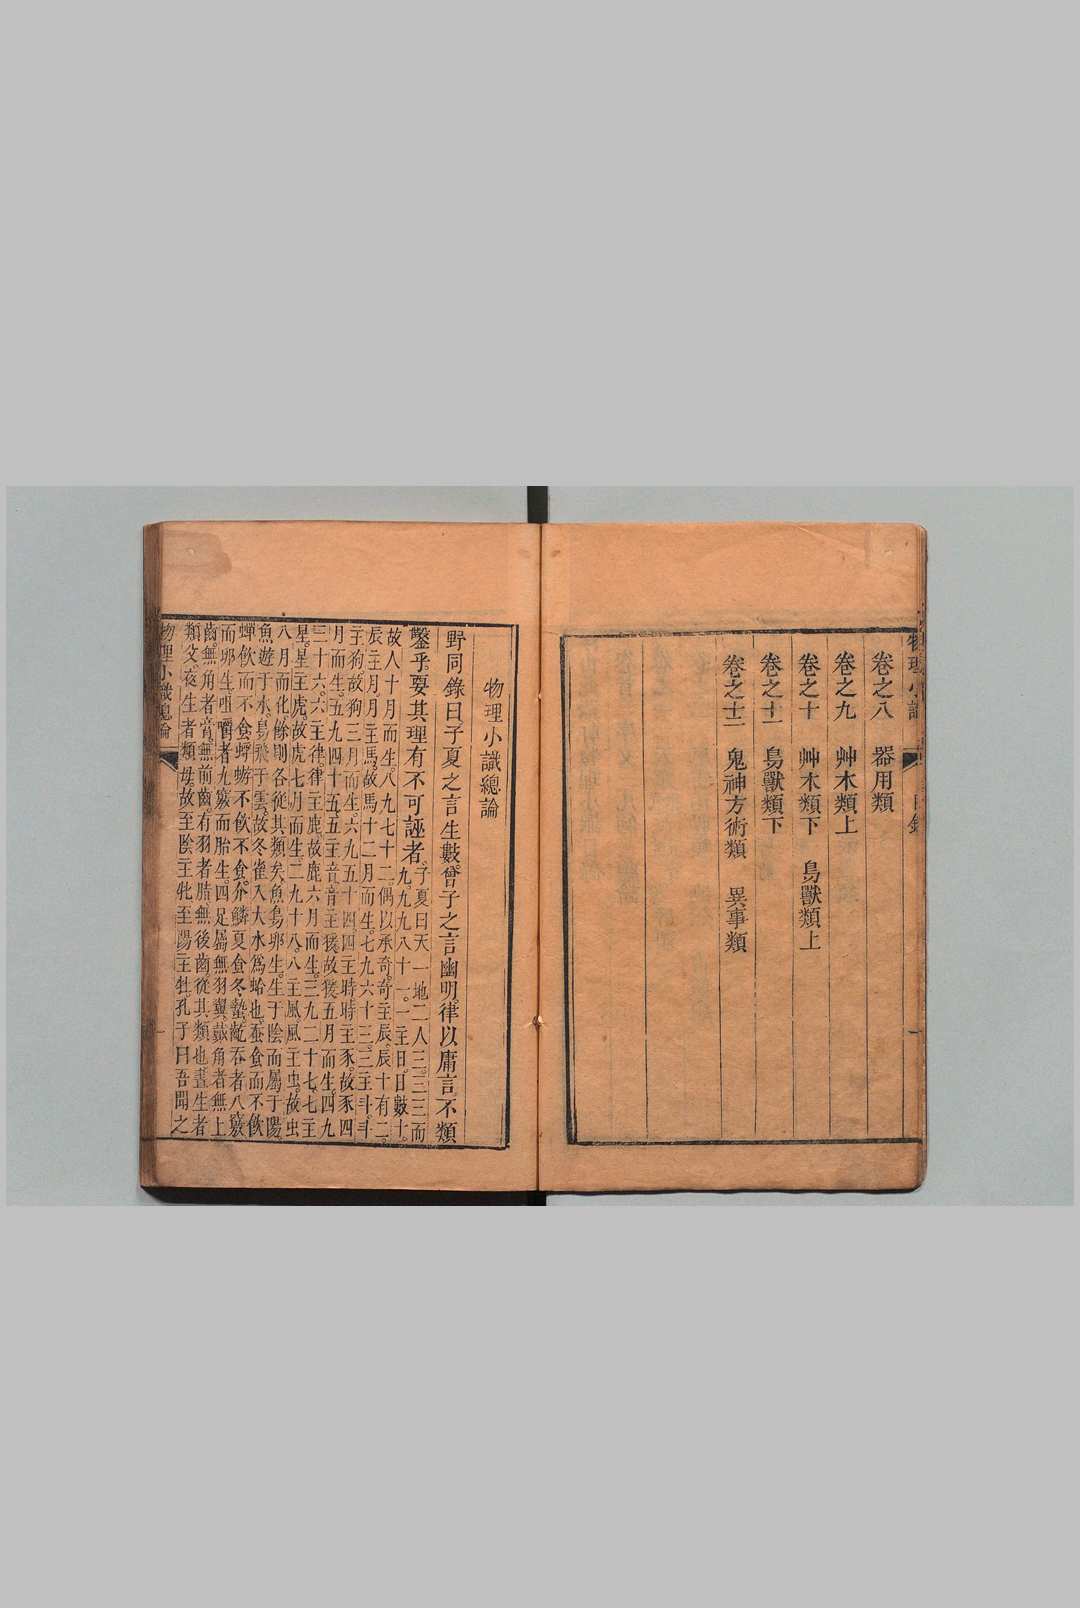 物理小識 目錄
卷之八 器用類
卷之九 艸木類上
卷之十 艸木類下 鳥獸類上
卷之十一 鳥獸類下
卷之十二 鬼神方術類 異事類
物理小識總論
野同錄曰子夏之言生數。曾子之言幽明律以庸言。不類
鑿乎。要其理有不可誣者。子夏曰天一地二人三。三三而
九。九九八十一。一主日日數十。
故人十月而生。八九七十二。偶以承奇。奇主辰。辰十有二。
辰主月。月主馬。故馬十二月而生。七九六十三。三主斗。斗
主狗。故狗三月而生。六九五十四。四主時。時主豕。故豕四
月而生。五九四十五。五主音。音主猨。故猨五月而生。四九
三十六。六主律。律主鹿。故鹿六月而生。三九二十七。七主
星。星主虎。故虎七月而生。二九十八。八主風。風主虫。故虫
八月而化。餘則各從其類矣。魚鳥卵生。生于陰而屬于陽。
魚遊于水。鳥飛于雲。故冬雀入大水爲蛤也。蚕食而不飲
蟬飲而不食。蜉蝣不飲不食。介鱗夏食冬蟄。齕吞者八竅
而卵生。咀嚼者九竅而胎生。四足屬無羽翼。戴角者無上
齒。無角者膏。無前齒。有羽者脂。無後齒。從其類也。晝生者
類父。夜生者類母。故至陰主牝。至陽主牡。孔子曰吾聞之
物理小識總論